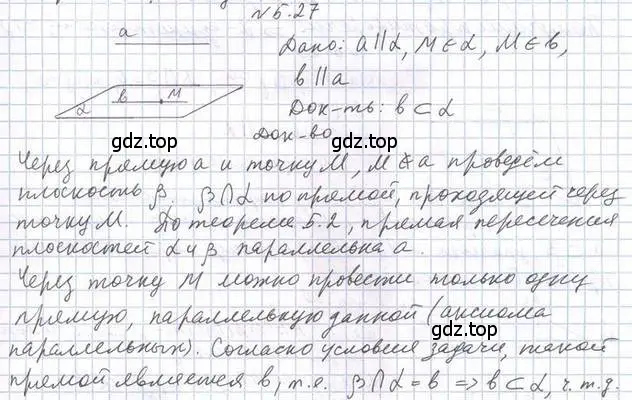 №5.27
a
Дано: a∥α, M∈α, M∈b,
b∥a
b M
α
Док-ть: b⊂α
gdz.top gdz.top
Док-во
Через прямую a и точку M, M∉a проведём
плоскость β. β∩α по прямой, проходящей через
точку M. По теореме 5.2, прямая пересечения
плоскостей α и β параллельна a.
Через точку M можно провести только одну
прямую, параллельную данной (аксиома
параллельных). Согласно условия задачи, такой
прямой является b, т.е. β∩α=b ⇒ b⊂α, ч.т.д.
gdz.top gdz.top
gdz.top gdz.top